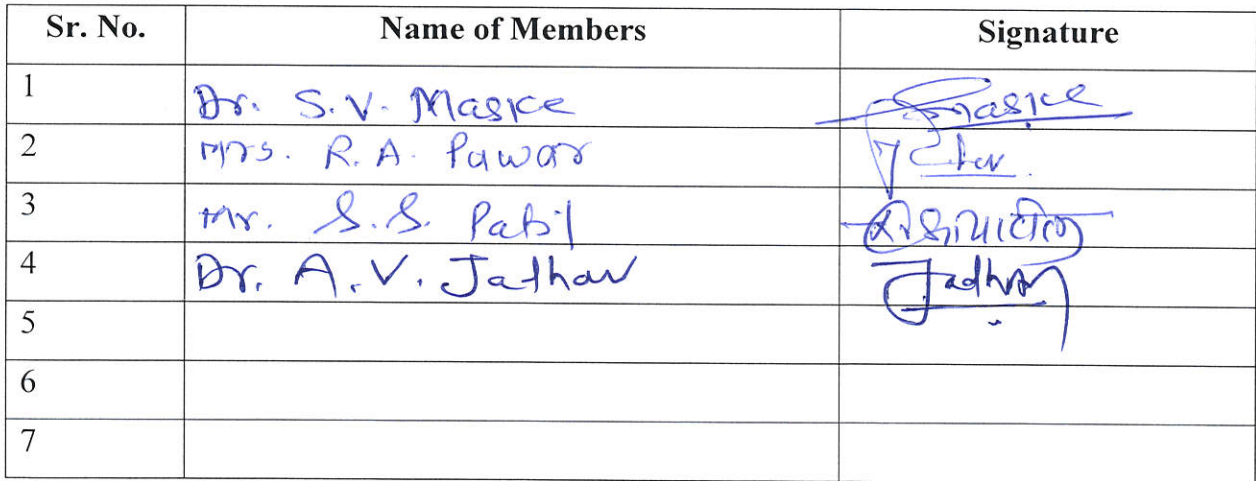 Sr. No. Name of Members Signature
1 Dr. S.V. Maske Smaske
2 Mrs. R.A. Pawar
3 Mr. S.S. Patil
4 Dr. A.V. Jadhav Jadhav
5
6
7